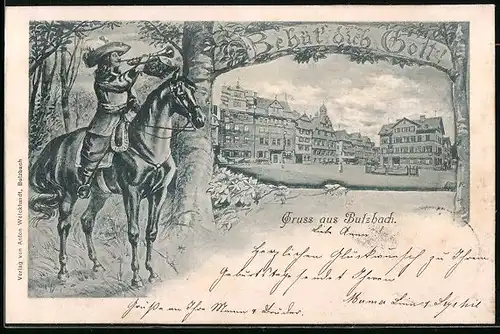 Behüt' dich Gott!
Gruss aus Butzbach.
Liebe Anna!
Herzlichen Glückwunsch zu Ihrem
Geburtstage sendet Ihnen
Mama
Grüße an Ihre Mama & Brüder.
Verlag von Anton Weickhardt, Butzbach